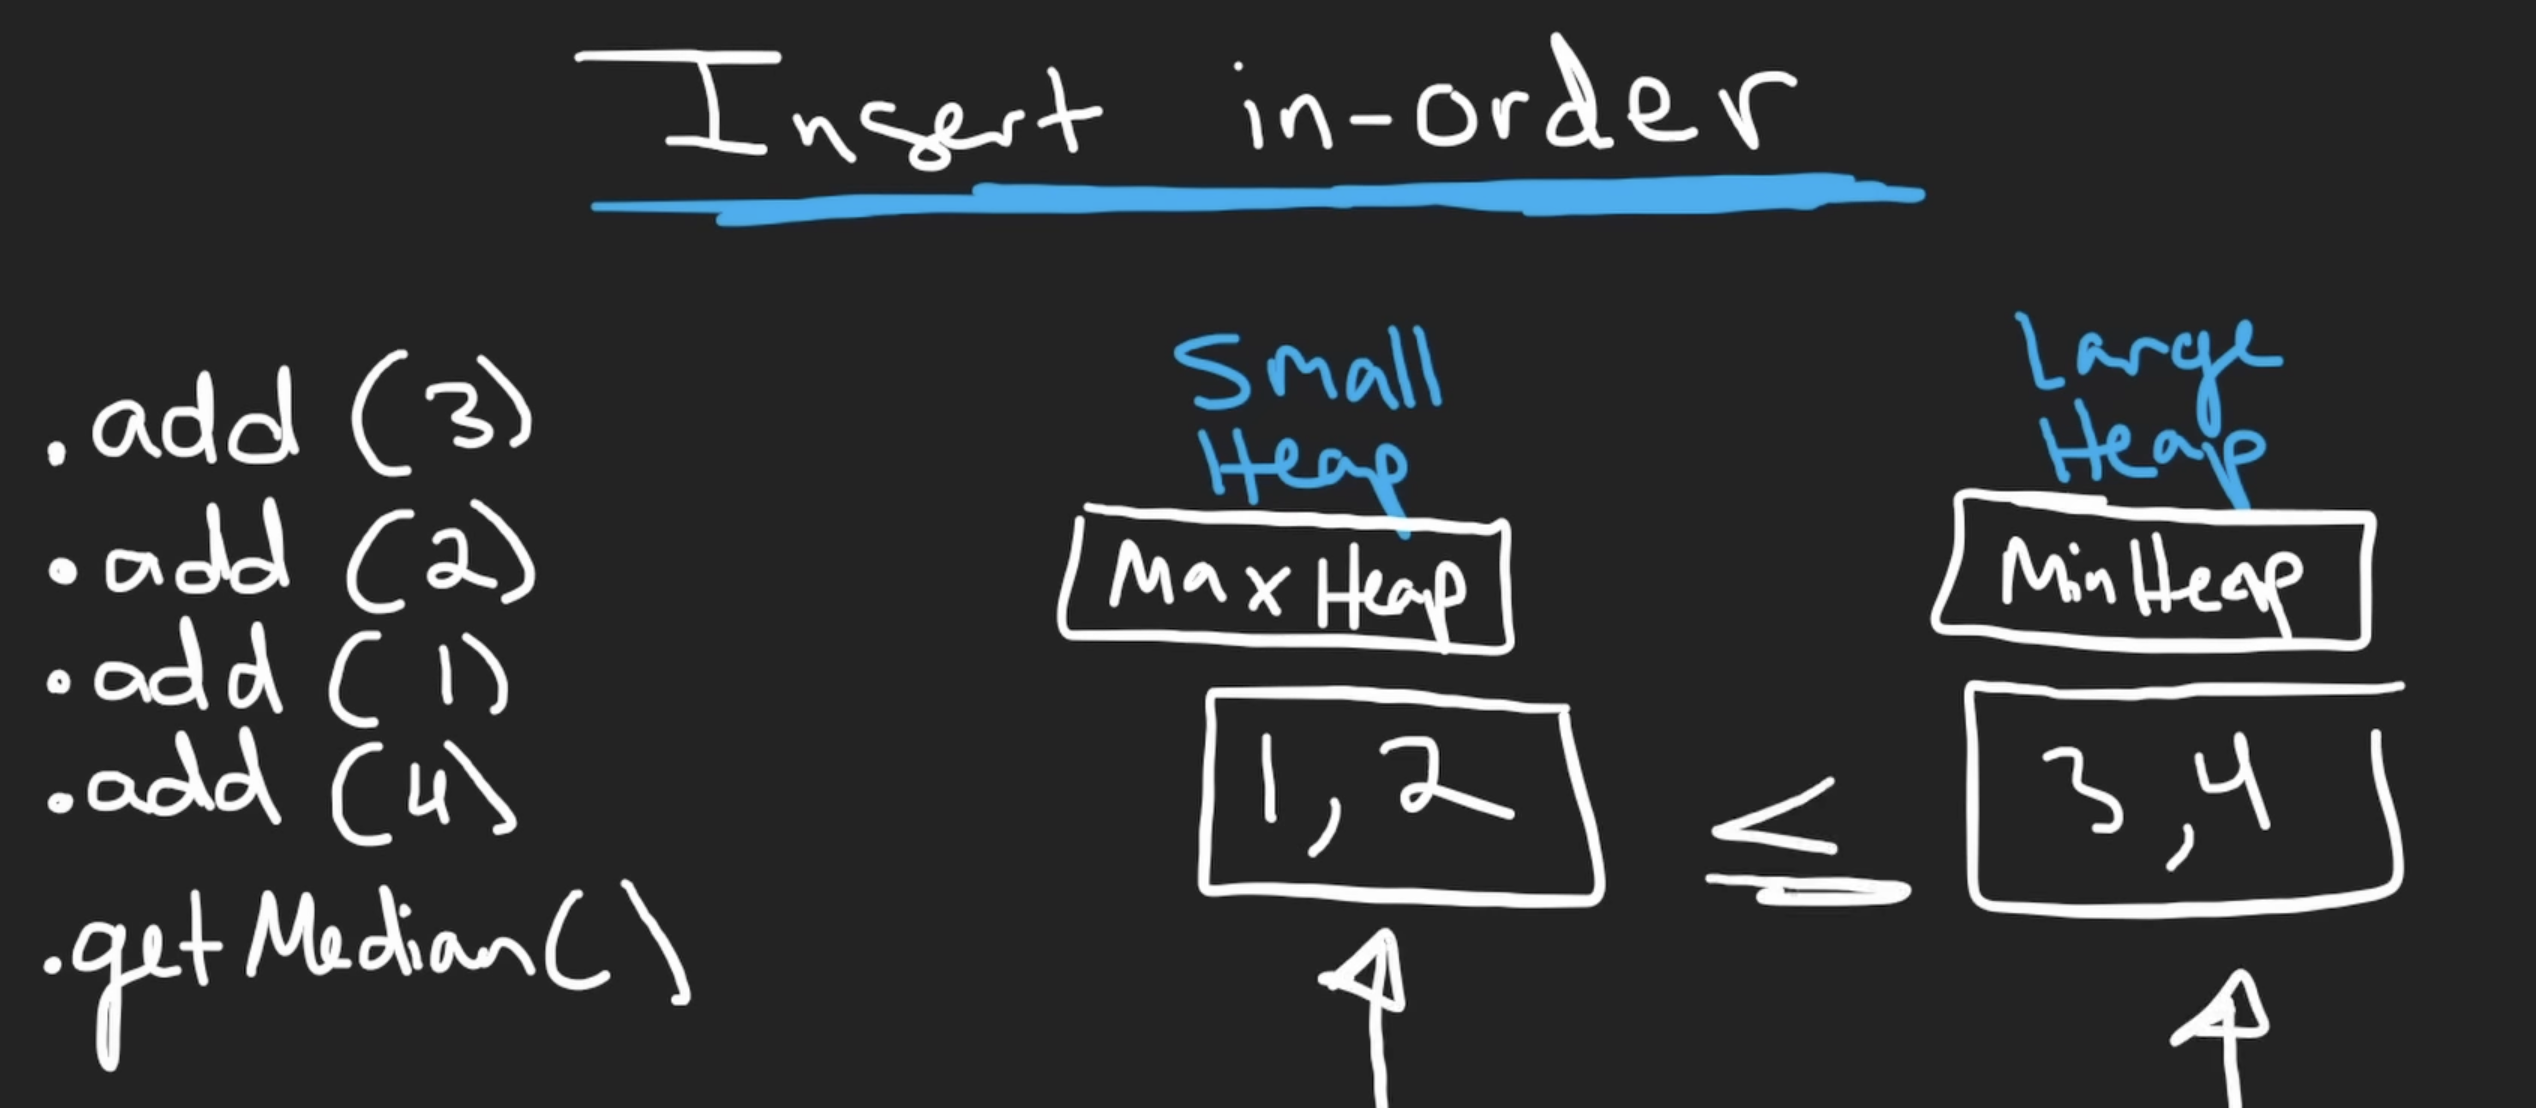 Insert in-order
.add (3)
.add (2)
.add (1)
.add (4)
.getMedian()
Small
Heap
Max Heap
1, 2
≤
Large
Heap
Min Heap
3, 4